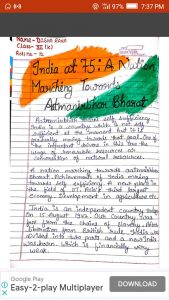 7:37 PM
Name - Disha Rana
Class - XII (C)
Roll no - 12
India at 75: A Nation
Marching Towards
Atmanirbhar Bharat
Atmanirbhar means self sufficiency
India is a country which is not self
sufficient at the moment but it is
gradually moving towards that goal. One of
the important drivers in this are the
usage of renewable resources or
conservation of natural resources.
A nation marching towards aatmanirbhar
bharat. Achievements of India moving
towards self sufficiency. A new place in
the field of IT. Policy aided largest
Economy Development in agriculture etc.
India is an independent country today
on 15 August 1947. Our Country was
free from the chains of slavery. After
liberation from British rule India was
divided into parts and a new India
was born which is financially very
weak.
DOWNLOAD
Google Play
Easy-2-play Multiplayer
DOWNLOAD